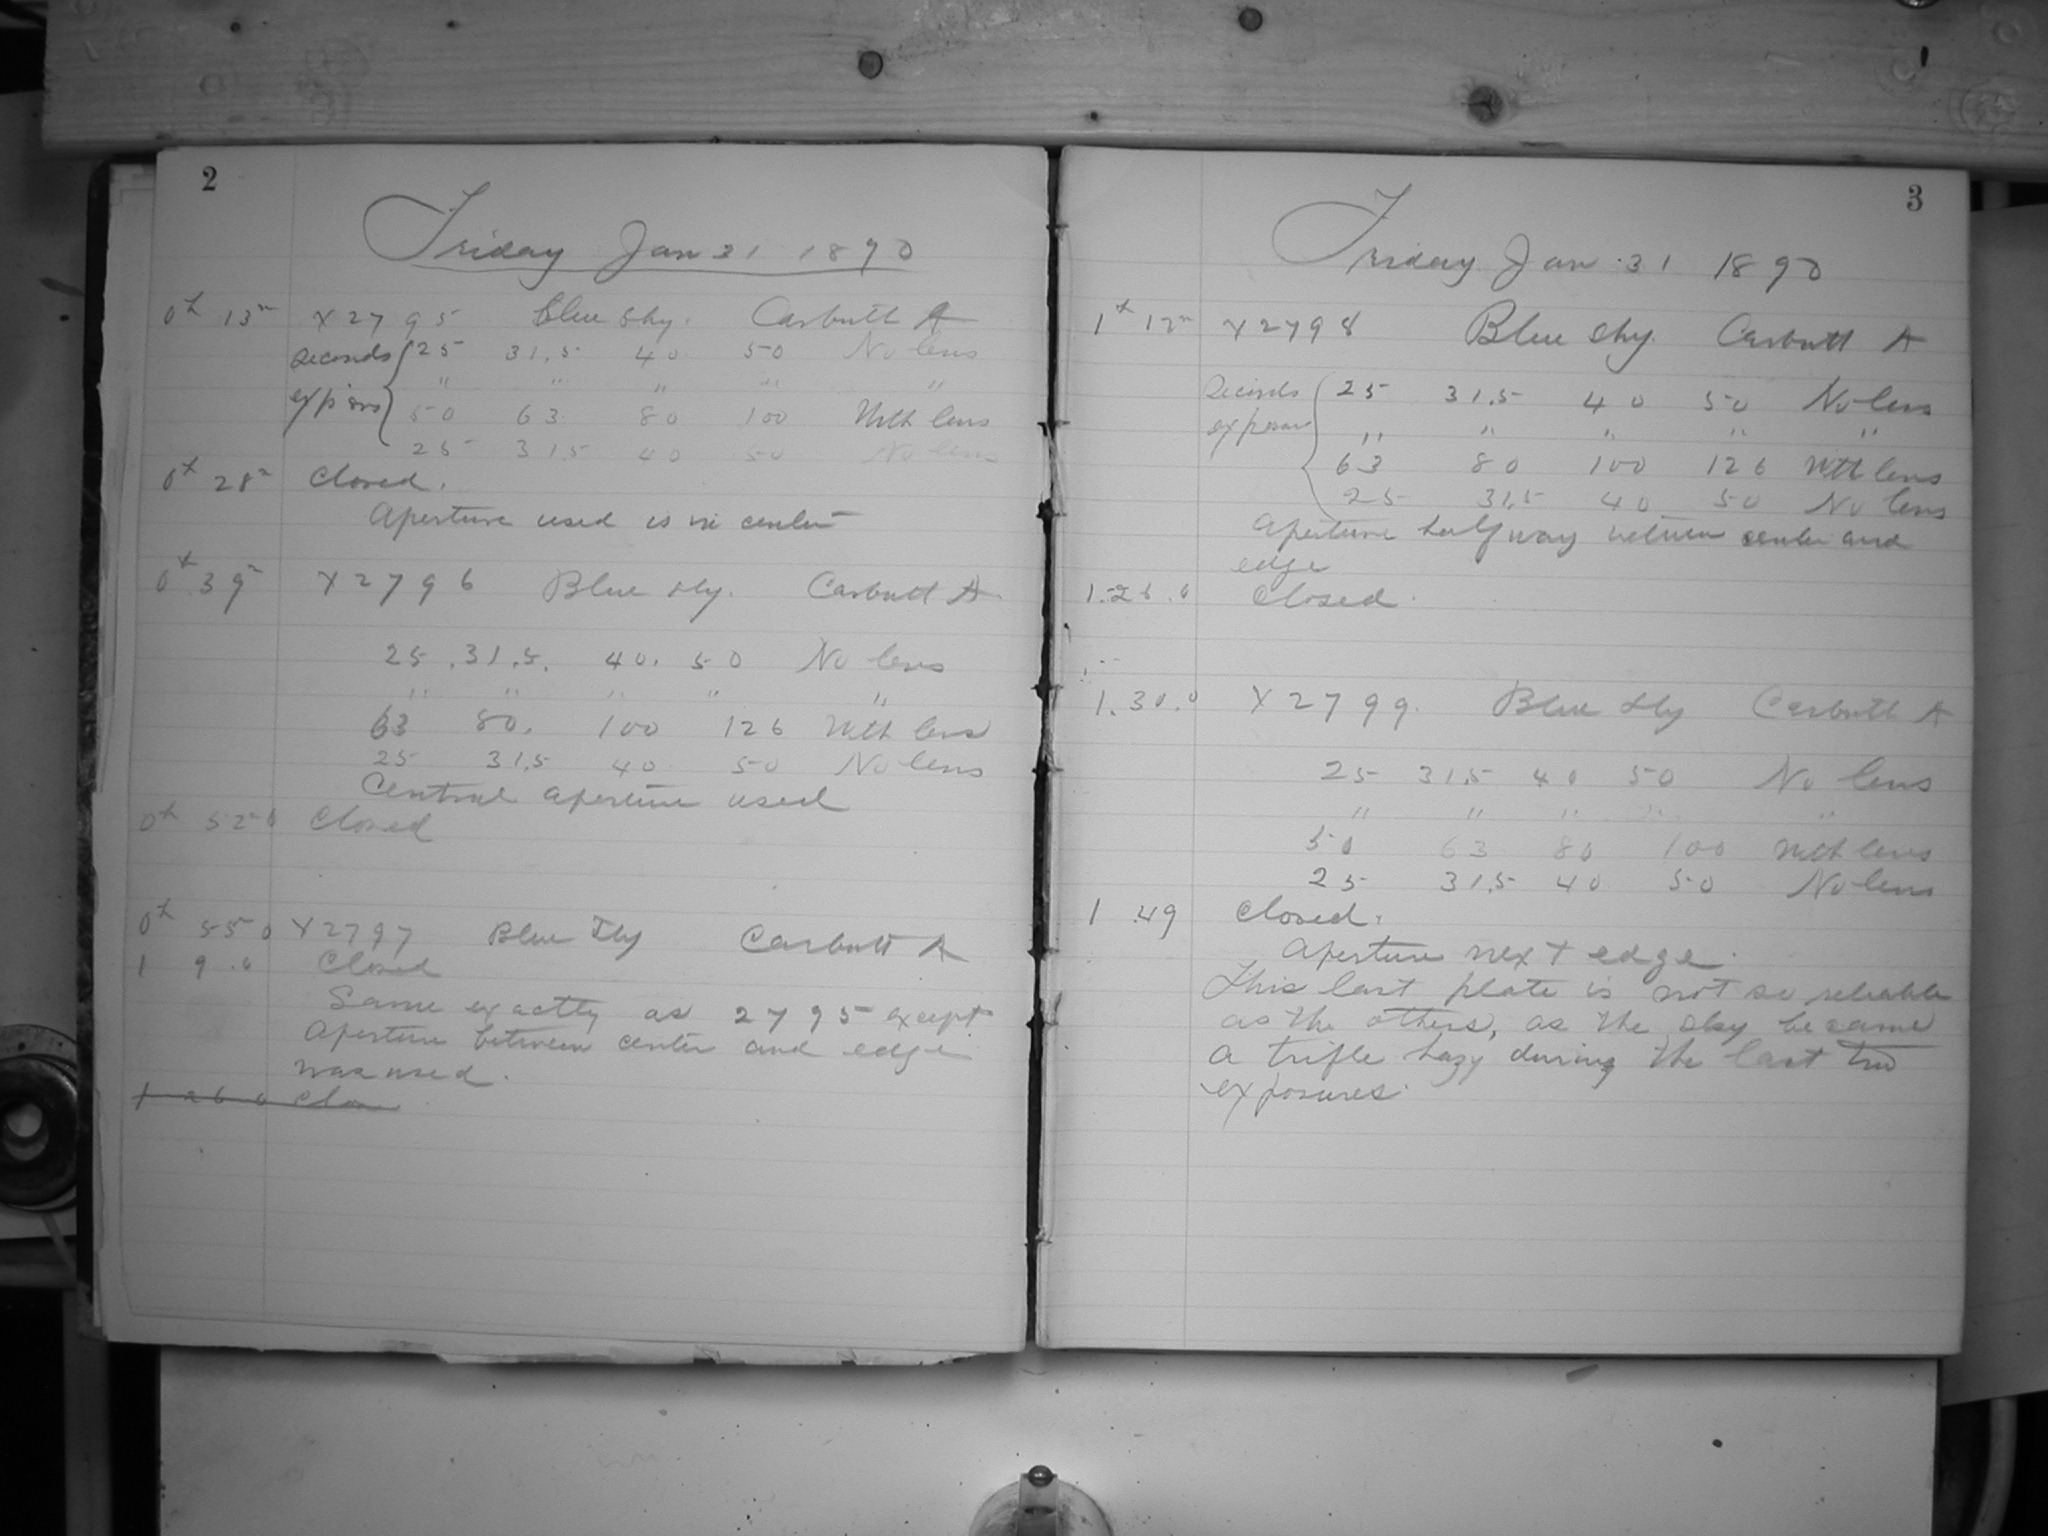 2
Friday Jan 31 1890
0h 13m X2795 Blue Sky. Carbutt A
Seconds 25 31.5 40 50 No lens
" " " " "
50 63 80 100 With lens
25 31.5 40 50 No lens
0h 28m Closed.
Aperture used is in center
0h 39m X2796 Blue sky. Carbutt A
25 . 31.5. 40. 50 No lens
" " " " "
63 80. 100 126 With lens
25 31.5 40 50 No lens
Central aperture used
0h 52 0 Closed
0h 55 0 X2797 Blue Sky Carbutt A
1 9 .0 Closed
Same exactly as 2795 except
Aperture between center and edge
was used.
1 26 0 Clos
3
Friday Jan. 31 1890
1h 12m X2798 Blue sky. Carbutt A
Seconds 25 31.5 40 50 No lens
exposure " " " " "
63 80 100 126 With lens
25 31.5 40 50 No lens
Aperture half way between center and
edge
1.26.0 Closed.
1.30.0 X2799. Blue sky Carbutt A
25 31.5 40 50 No lens
" " " " "
50 63 80 100 With lens
25 31.5 40 50 No lens
1 .49 Closed.
Aperture next edge.
This last plate is not so reliable
as the others, as the sky became
a trifle hazy during the last two
exposures.